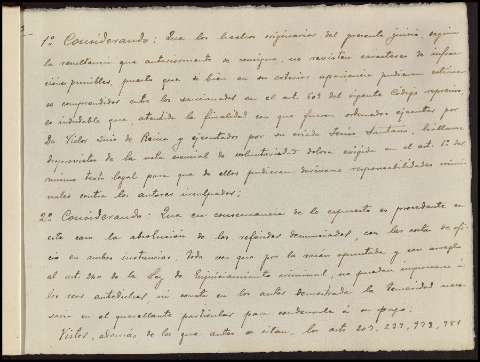 1º Considerando: Que los hechos originarios del presente juicio, según
la resultancia que anteriormente se consigna, no revisten caracteres de infrac-
ción punibles, puesto que si bien en su exterior apariencia pudieran estimar-
se comprendidos entre los sancionados en el art. 603 del vigente Código represivo
es indudable que, atendida la finalidad con que fueron ordenados ejecutar por
Dn Victor Ruiz de Reina y ejecutados por su criado Santana, hállanse
desprovistos de la nota esencial de voluntariedad dolosa exigida en el art. 1º del
mismo texto legal para que de ellos pudieran derivarse responsabilidades crimi-
nales contra los autores inculpados;
2º Considerando: Que en consecuencia de lo expuesto es procedente en
este caso la absolución de los referidos denunciados, con las costas de ofi-
cio en ambas instancias, toda vez que por la razon apuntada y con arreglo
al art. 240 de la Ley de Enjuiciamiento criminal, no pueden imponerse á
los reos autodichos, ni consta en los autos demostrada la temeridad nece-
saria en el querellante particular para condenarle á su pago;
Vistos, además de los que antes se citan, los arts 203, 239, 973, 981